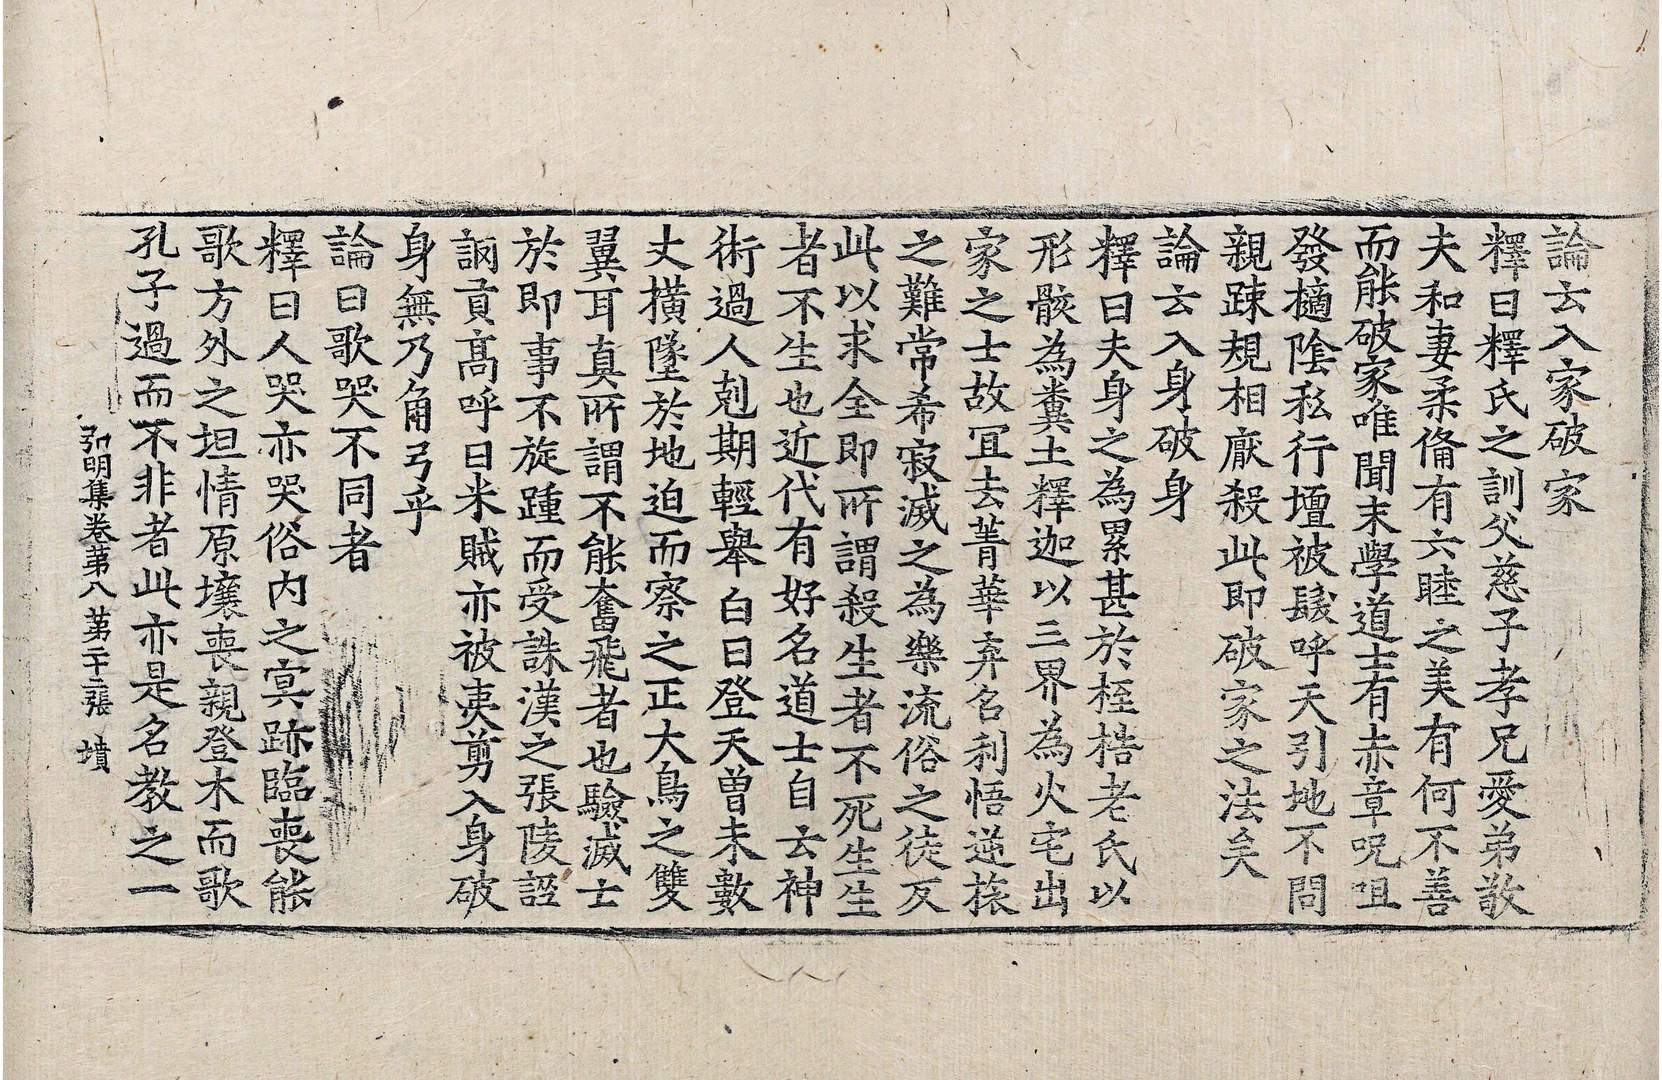 論云入家破家
釋曰釋氏之訓父慈子孝兄愛弟敬
夫和妻柔俻有六睦之美有何不善
而能破家唯聞末學道士有赤章呪咀
發擿陰私行壇被髮呼天引地不問
親踈規相厭殺此即破家之法矣
論云入身破身
釋曰夫身之為累甚於桎梏老氏以
形骸為糞土釋迦以三界為火宅出
家之士故冝去菁華弃名利悟逆旅
之難常希寂滅之為樂流俗之徒反
此以求全即所謂殺生者不死生生
者不生也近代有好名道士自云神
術過人剋期輕舉白日登天曽未數
丈撗墜於地迫而察之正大鳥之雙
翼耳真所謂不能奮飛者也驗滅士
於即事不旋踵而受誅漢之張陵誣
詷貢髙呼曰米賊亦被夷剪入身破
身無乃角弓乎
論曰歌哭不同者
釋曰人哭亦哭俗内之㝠跡臨喪能
歌方外之坦情原壤喪親登木而歌
孔子過而不非者此亦是名教之一
弘明集卷苐八 苐二十二張 墳